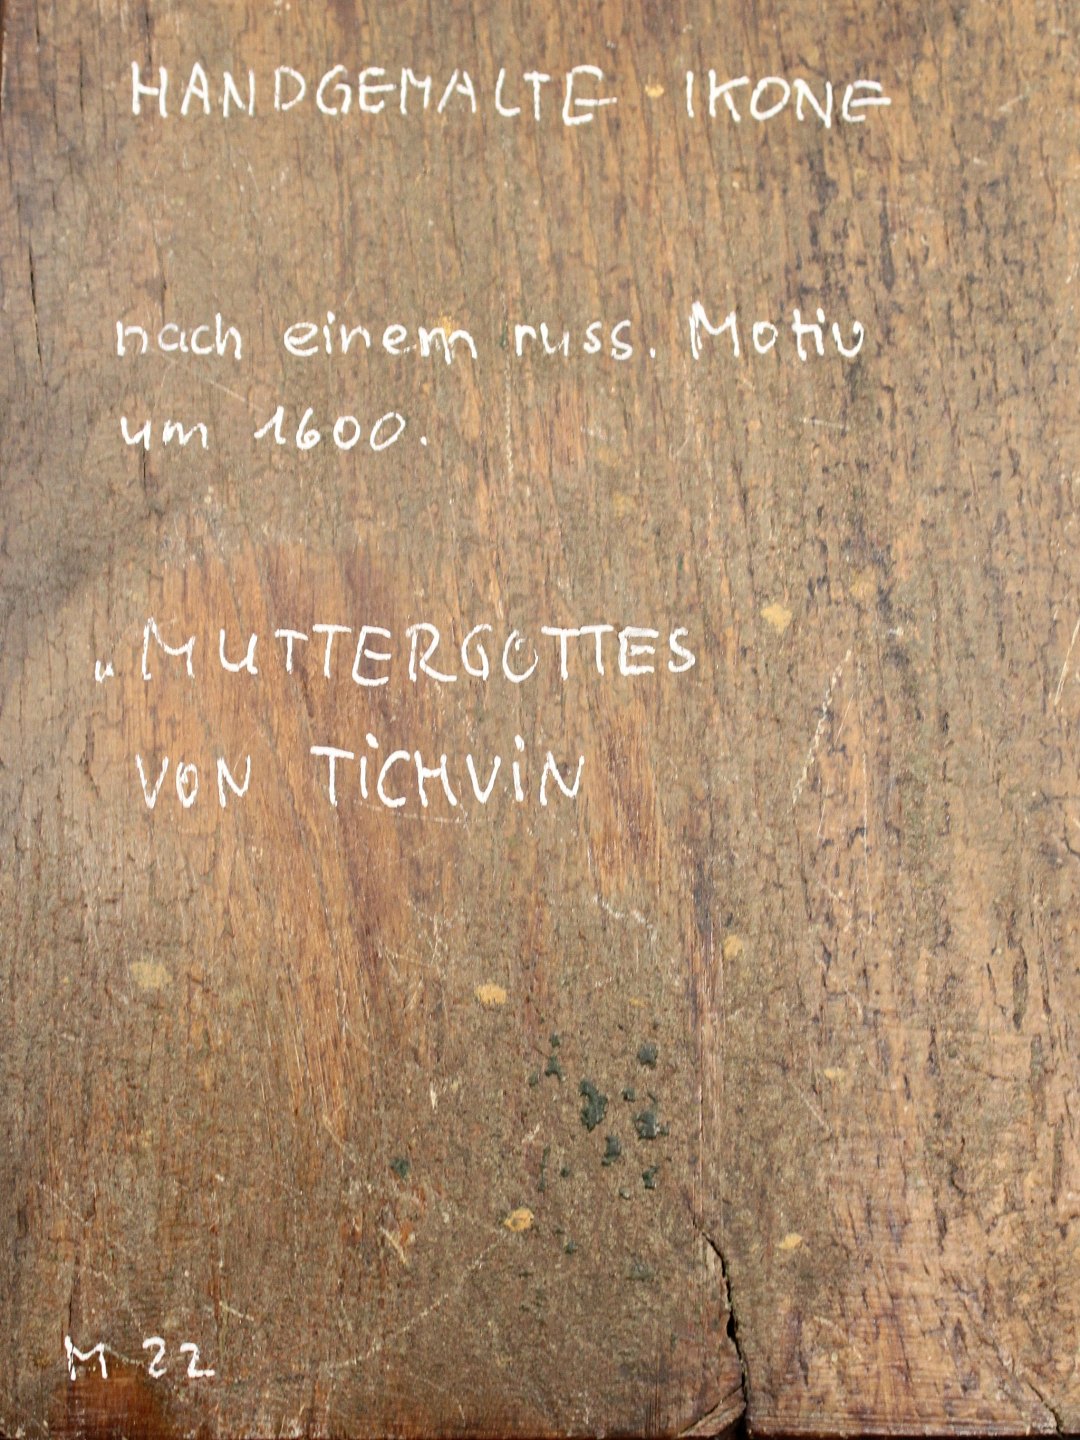 HANDGEMALTE IKONE
nach einem russ. Motiv
um 1600.
„MUTTERGOTTES
VON TiCHViN
M 22